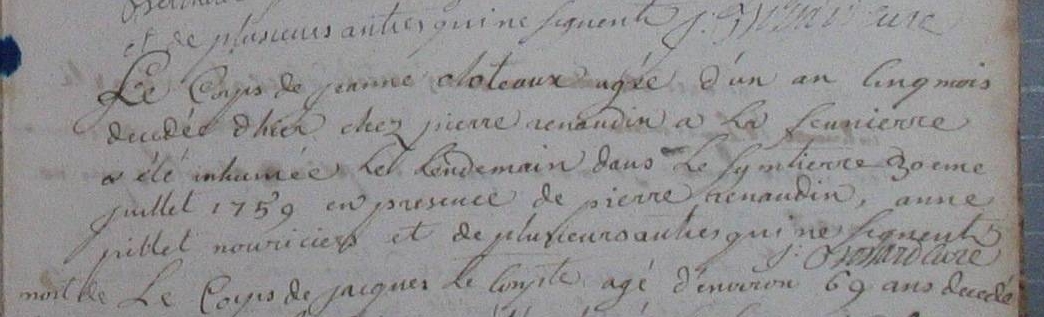 et de plusieurs autres qui ne signent j. curé
Le Corps de jeanne cloteaux agée d'un an cinq mois
decedée d'hier chez pierre renaudin a la
a été inhumée Le Lendemain dans Le symtierre 30eme
juillet 1759 en presence de pierre renaudin, anne
pillet nouriciers et de plusieurs autres qui ne signent
j. curé
mort de Le Corps de jacques Le Compte agé d'environ 69 ans decedé